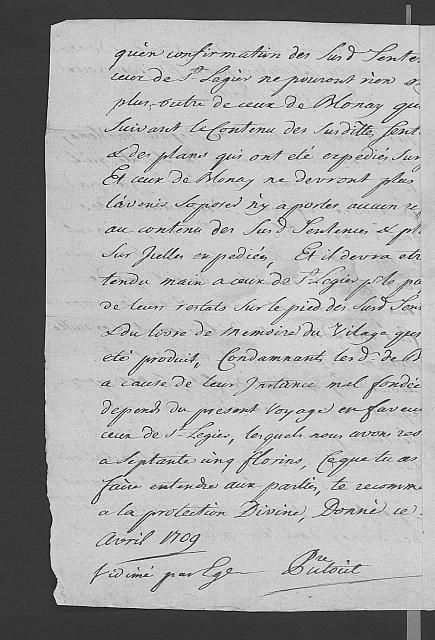 qu'en confirmation des Susd Sente
ceux de St Legier ne pouront rien
plus outre de ceux de Blonay que
Suivant le Contenu des susditte Sent
& des plans qui ont eté expediés Sur
Et ceux de Blonay ne devront plus
l'avenir Soposer n'y aporter aucun
au contenu des Susd Sentences & pl
Sur Jcelles expediées, Et il devra etr
tendu main a ceux de St Legier p le pa
de leurs restats Sur le pied des Susd Sen
& du livre de memoire du Vilage qui
eté produit, Condamnants les d. de B
a cause de leur Jnstance mal fondée
depends du present Voyage en faveur
ceux de St Legier, lesquels nous avons
a Septante cinq florins, Ce que tu as
faire entendre aux parties, te recomm
a la protection Divine, Donné ce
Avril 1709
Vidimé par Ege